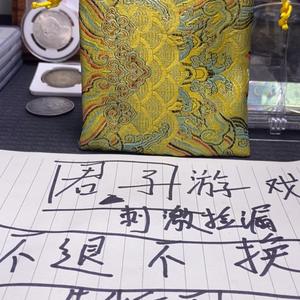 君子游戏
刺激捡漏
不退不换